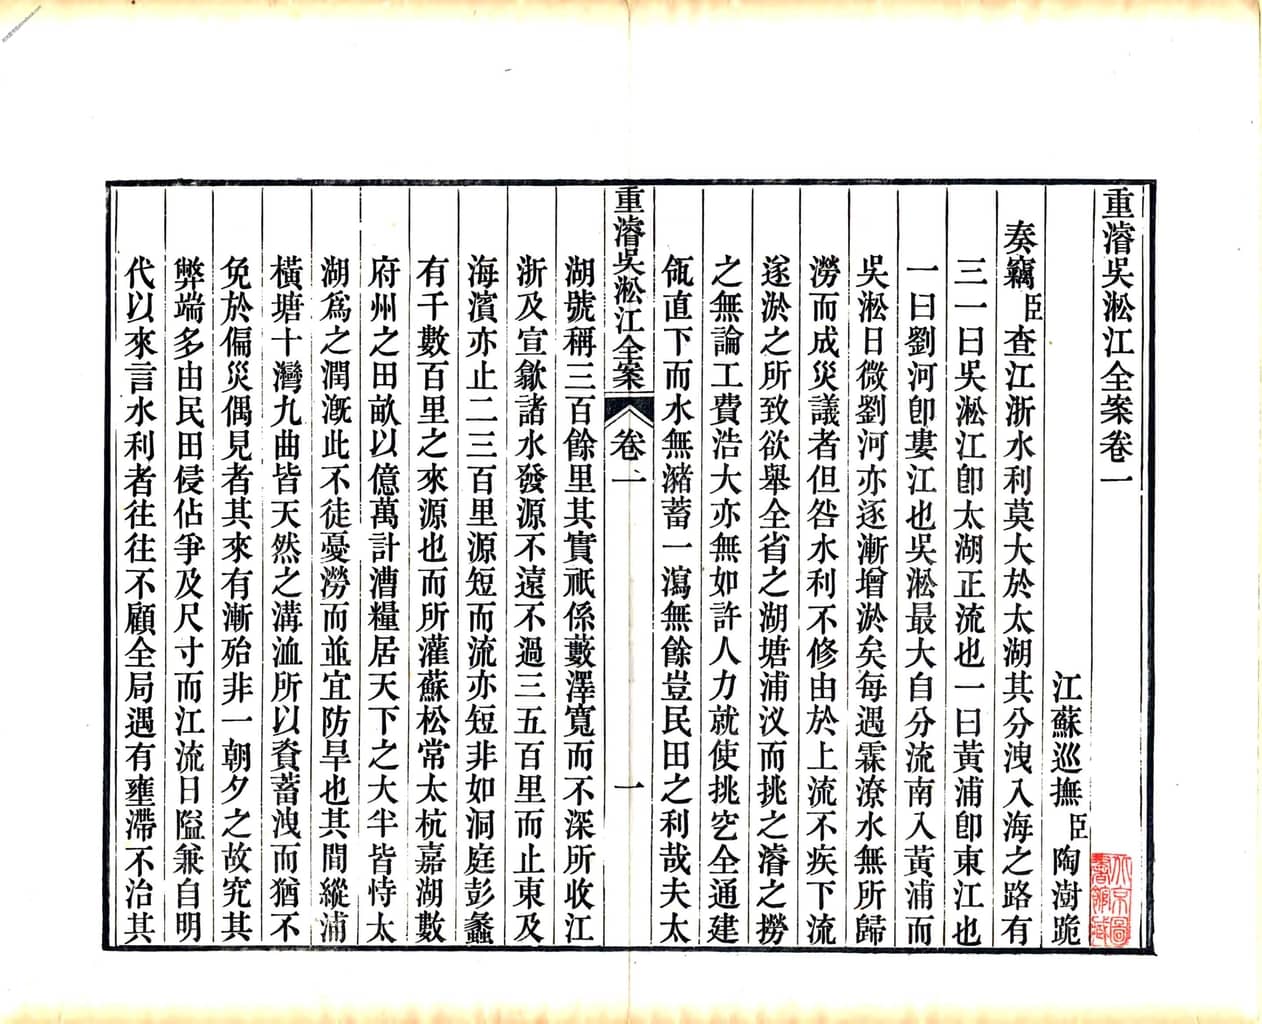 重濬吳淞江全案卷一
江蘇巡撫臣陶澍跪
奏竊臣查江浙水利莫大於太湖其分洩入海之路有
三一曰吳淞江卽太湖正流也一曰黃浦卽東江也
一曰劉河卽婁江也吳淞最大自分流南入黃浦而
吳淞日微劉河亦逐漸增淤矣每遇霖潦水無所歸
澇而成災議者但咎水利不修由於上流不疾下流
遂淤之所致欲舉全省之湖塘浦汊而挑之濬之撈
之無論工費浩大亦無如許人力就使挑穵全通建
瓴直下而水無瀦蓄一瀉無餘豈民田之利哉夫太
重濬吳淞江全案 卷一 一
湖號稱三百餘里其實祇係藪澤寬而不深所收江
浙及宣歙諸水發源不遠不過三五百里而止東及
海濱亦止二三百里源短而流亦短非如洞庭彭蠡
有千數百里之來源也而所灌蘇松常太杭嘉湖數
府州之田畝以億萬計漕糧居天下之大半皆恃太
湖爲之潤漑此不徒憂澇而並宜防旱也其間縱浦
橫塘十灣九曲皆天然之溝洫所以資蓄洩而猶不
免於偏災偶見者其來有漸殆非一朝夕之故究其
弊端多由民田侵佔爭及尺寸而江流日隘兼自明
代以來言水利者往往不顧全局遇有壅滯不治其
北京圖書館藏